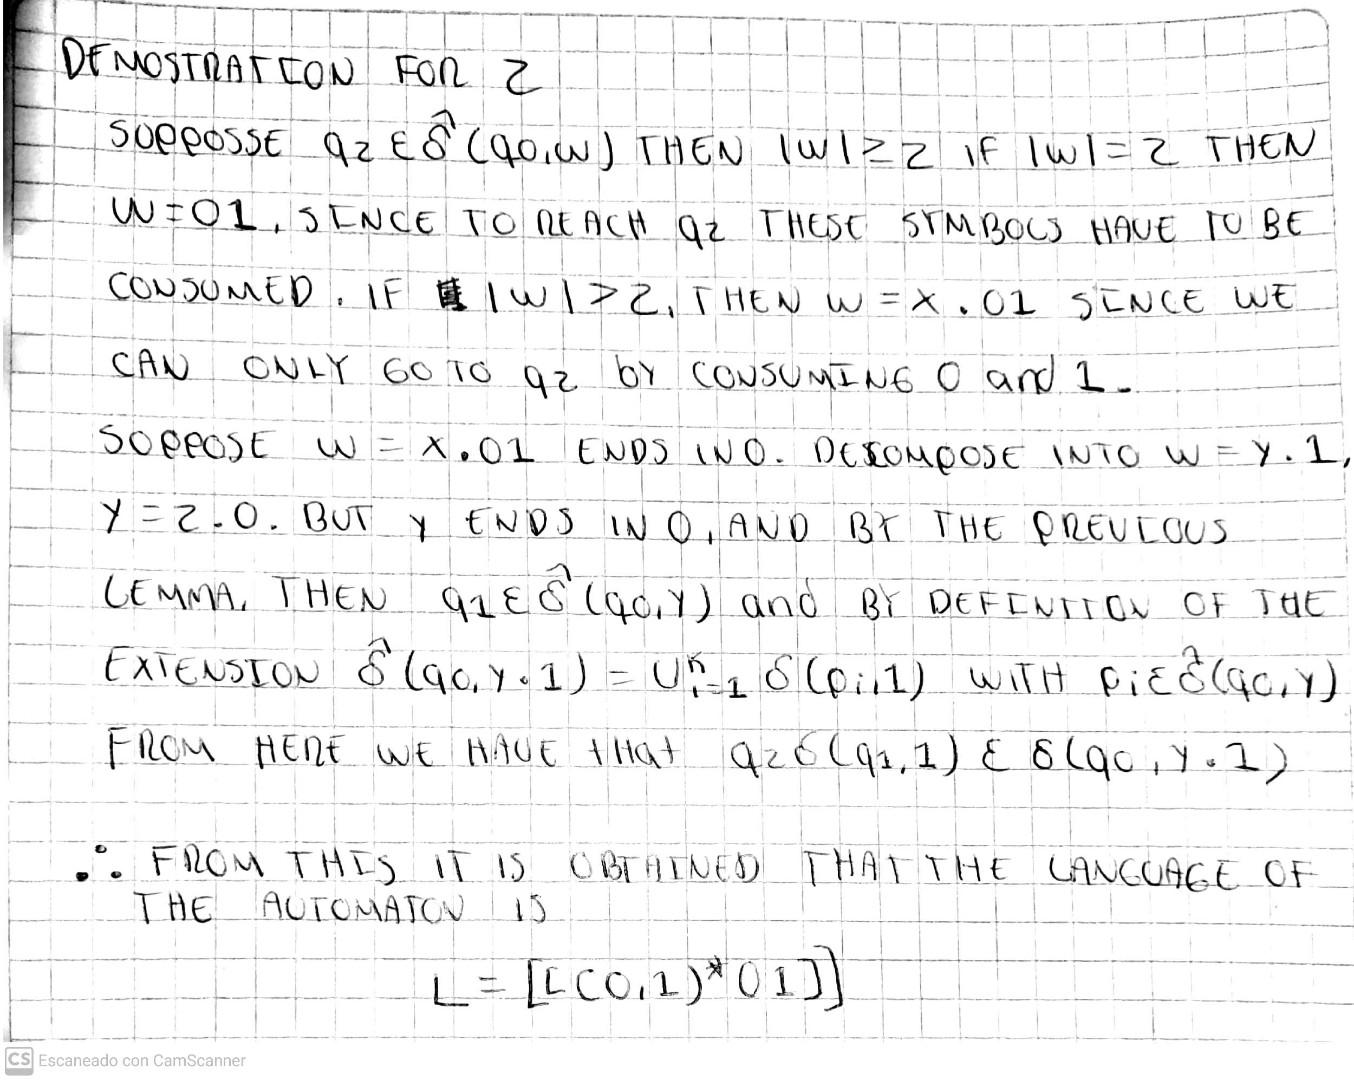 DEMOSTRATION FOR 2
SUPPOSSE q2 ε δ̂ (q0,w) THEN |w| ≥ 2 IF |w| = 2 THEN
W = 01, SINCE TO REACH q2 THESE SYMBOLS HAVE TO BE
CONSUMED. IF |w| > 2, THEN W = X . 01 SINCE WE
CAN ONLY GO TO q2 by CONSUMING 0 and 1.
SUPPOSE W = X.01 ENDS IN 0. DECOMPOSE INTO W = Y.1,
Y = Z.0. BUT Y ENDS IN 0, AND BY THE PREVIOUS
LEMMA, THEN q1 ε δ̂ (q0,Y) and BY DEFINITION OF THE
EXTENSION δ̂ (q0,Y.1) = U^n_{i=1} δ(Pi,1) WITH Pi ε δ̂(q0,Y)
FROM HERE WE HAVE tHat q2 δ(q1,1) ε δ(q0,Y.1)
∴ FROM THIS IT IS OBTAINED THAT THE LANGUAGE OF
THE AUTOMATON IS
L = [[(0,1)*01]]
CS Escaneado con CamScanner